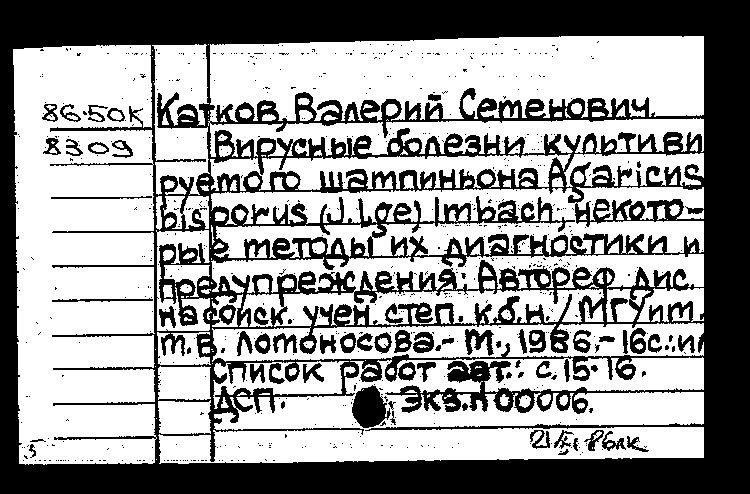 86-50К Катков, Валерий Сетенович.
8309 Вирусные болезни культиви
руемого шампиньона Agaricus
bisporus (J.Lge) Imbach, некото-
рые методы их диагностики и
предупреждения: Автореф. дис.
на соиск. учен. степ. к.б.н. / МГУ им.
М.В. Ломоносова.- М., 1986.- 16с.: ил
Список работ авт.: с. 15-16.
ДСП. Экз.N 00006.